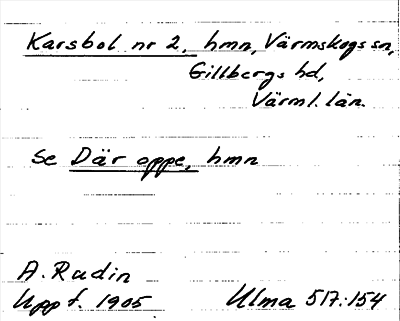 Karsbol nr 2, hmn, Värmskogs sn,
Gillbergs hd,
Värml. län.
se Där oppe, hmn
A. Rudin
Uppf. 1905 Ulma 517:154